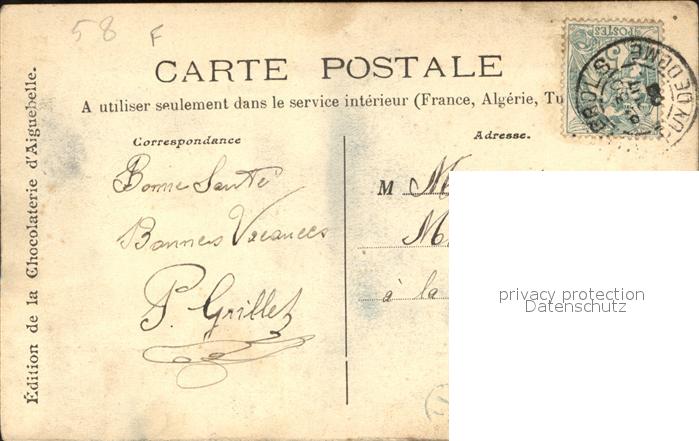 58 F
CARTE POSTALE
A utiliser seulement dans le service intérieur (France, Algérie, Tu
Correspondance
Adresse.
Édition de la Chocolaterie d'Aiguebelle.
Bonne Santé
Bonnes Vacances
P. Grillet
M
à la
privacy protection
Datenschutz
POSTES
DE DOME